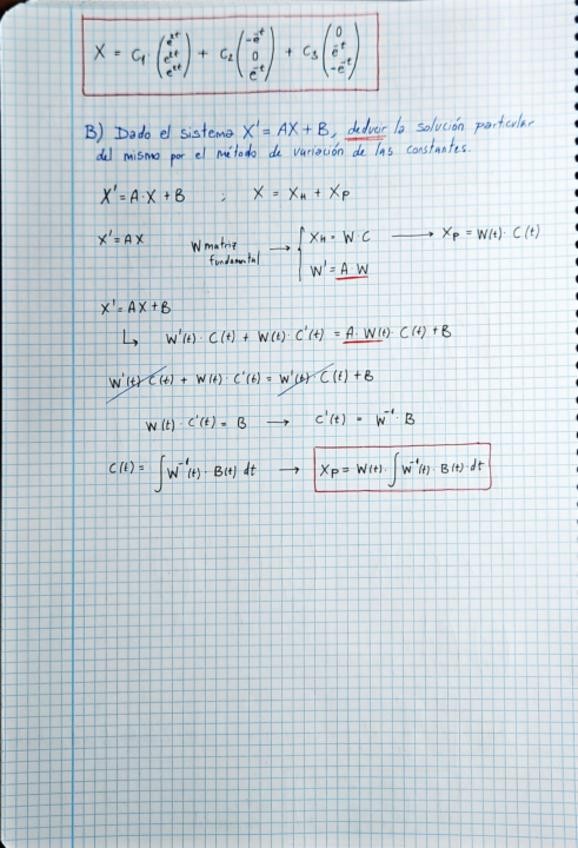 X = C₁ · (e^{2t} e^{2t} e^{2t}) + C₂ (-e^{-t} 0 e^{-t}) + C₃ (0 e^{-t} -e^{-t})
B) Dado el sistema X' = AX + B, deducir la solución particular
del mismo por el método de variación de las constantes.
X' = A·X + B ; X = X_H + X_P
X' = AX W matriz fundamental → { X_H = W·C → X_P = W(t)·C(t)
W' = A·W
X' = AX + B
↳ W'(t)·C(t) + W(t)·C'(t) = A·W(t)·C(t) + B
W'(t) C(t) + W(t)·C'(t) = W'(t) C(t) + B
W(t)·C'(t) = B → C'(t) = W⁻¹·B
C(t) = ∫W⁻¹(t)·B(t) dt → X_P = W(t)·∫W⁻¹(t)·B(t)·dt